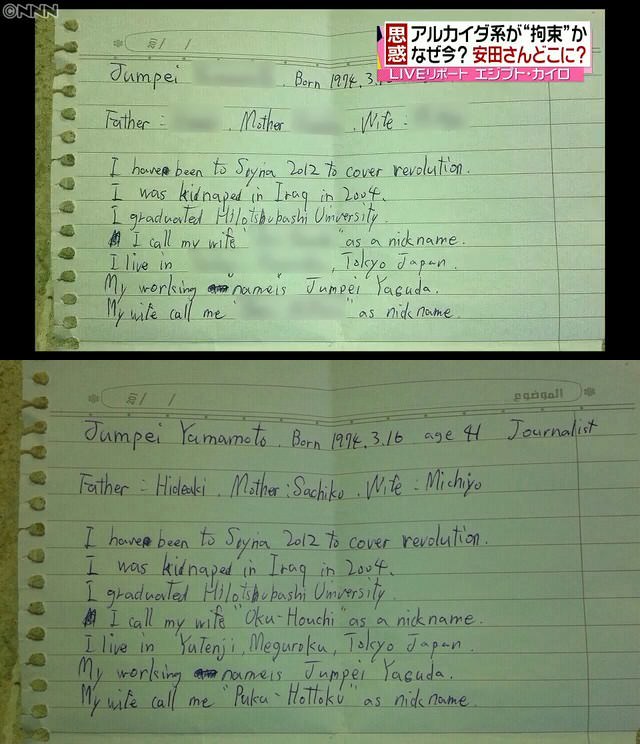 ©NNN
思惑
アルカイダ系が“拘束”か
なぜ今? 安田さんどこに?
LIVEリポート エジプト・カイロ
Jumpei . Born 1974.3.
Father = . Mother . Wife =
I have been to Syria 2012 to cover revolution.
I was kidnaped in Iraq in 2004.
I graduated Hitotsubashi University.
I call my wife " " as a nickname.
I live in , Tokyo Japan.
My working "name" is Jumpei Yasuda.
My wife call me " " as nickname.
الموضوع
Jumpei Yamamoto. Born 1974.3.16 age 41 Journalist
Father = Hideaki. Mother: Sachiko. Wife = Michiyo
I have been to Syria 2012 to cover revolution.
I was kidnaped in Iraq in 2004.
I graduated Hitotsubashi University.
I call my wife "Oku-Houchi" as a nickname.
I live in Yutenji, Meguroku, Tokyo Japan.
My working name is Jumpei Yasuda.
My wife call me "Puku-Hottoku" as nickname.